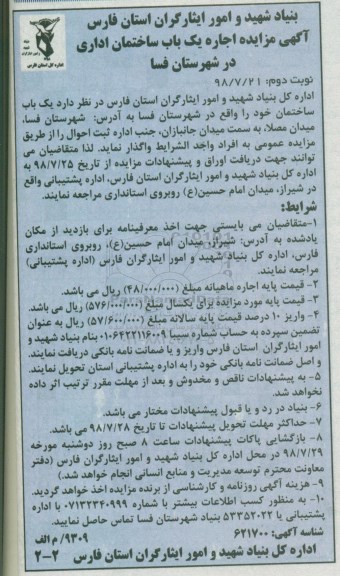 بنیاد شهید و امور ایثارگران استان فارس
آگهی مزایده اجاره یک باب ساختمان اداری
در شهرستان فسا
اداره کل استان فارس
نوبت دوم: ۹۸/۷/۲۱
اداره کل بنیاد شهید و امور ایثارگران استان فارس در نظر دارد یک باب
ساختمان خود را واقع در شهرستان فسا به آدرس: شهرستان فسا،
میدان معلا، به سمت میدان جانبازان، جنب اداره ثبت احوال را از طریق
مزایده عمومی به افراد واجد الشرایط واگذار نماید. لذا متقاضیان می
توانند جهت دریافت اوراق و پیشنهادات مزایده از تاریخ ۹۸/۷/۲۵ به
اداره کل بنیاد شهید و امور ایثارگران استان فارس، اداره پشتیبانی واقع
در شیراز، میدان امام حسین(ع) روبروی استانداری مراجعه نمایند.
شرایط:
۱-متقاضیان می بایستی جهت اخذ معرفینامه برای بازدید از مکان
یادشده به آدرس: شیراز، میدان امام حسین(ع)، روبروی استانداری
فارس، اداره کل بنیاد شهید و امور ایثارگران فارس (اداره پشتیبانی)
مراجعه نمایند.
۲- قیمت پایه اجاره ماهیانه مبلغ (۴۸/۰۰۰/۰۰۰) ریال می باشد.
۳- قیمت پایه مورد مزایده برای یکسال مبلغ (۵۷۶/۰۰۰/۰۰۰) ریال می باشد.
۴- واریز ۱۰ درصد قیمت پایه سالانه مبلغ (۵۷/۶۰۰/۰۰۰) ریال به عنوان
تضمین سپرده به حساب شماره سیبا ۰۱۰۶۴۲۲۱۱۶۰۰۹ بنام بنیاد شهید و
امور ایثارگران استان فارس واریز و یا ضمانت نامه بانکی دریافت نمایند.
و اصل ضمانت نامه بانکی خود را به اداره پشتیبانی استان تحویل نمایند.
۵- به پیشنهادات ناقص و مخدوش و بعد از مهلت مقرر ترتیب اثر داده
نخواهد شد.
۶- بنیاد در رد و یا قبول پیشنهادات مختار می باشد.
۷- حداکثر مهلت تحویل پیشنهادات تا تاریخ ۹۸/۷/۲۸ می باشد.
۸- بازگشایی پاکات پیشنهادات ساعت ۸ صبح روز دوشنبه مورخه
۹۸/۷/۲۹ در محل اداره کل بنیاد شهید و امور ایثارگران فارس (دفتر
معاونت محترم توسعه مدیریت و منابع انسانی انجام خواهد شد.)
۹- هزینه آگهی روزنامه و کارشناسی از برنده مزایده اخذ خواهد گردید.
۱۰- به منظور کسب اطلاعات بیشتر با شماره ۰۷۱۳۲۳۴۰۹۹۹ با اداره
پشتیبانی یا ۵۳۳۵۲۰۲۲ بنیاد شهرستان فسا تماس حاصل نمایید.
شناسه آگهی: ۶۲۱۷۰۰ ۹۳۰۹/م الف
اداره کل بنیاد شهید و امور ایثارگران استان فارس ۲-۲